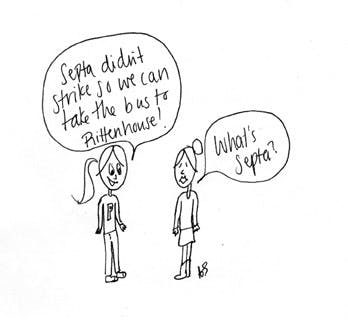 Septa didn't
strike so we can
take the bus to
Rittenhouse!
What's
Septa?
P